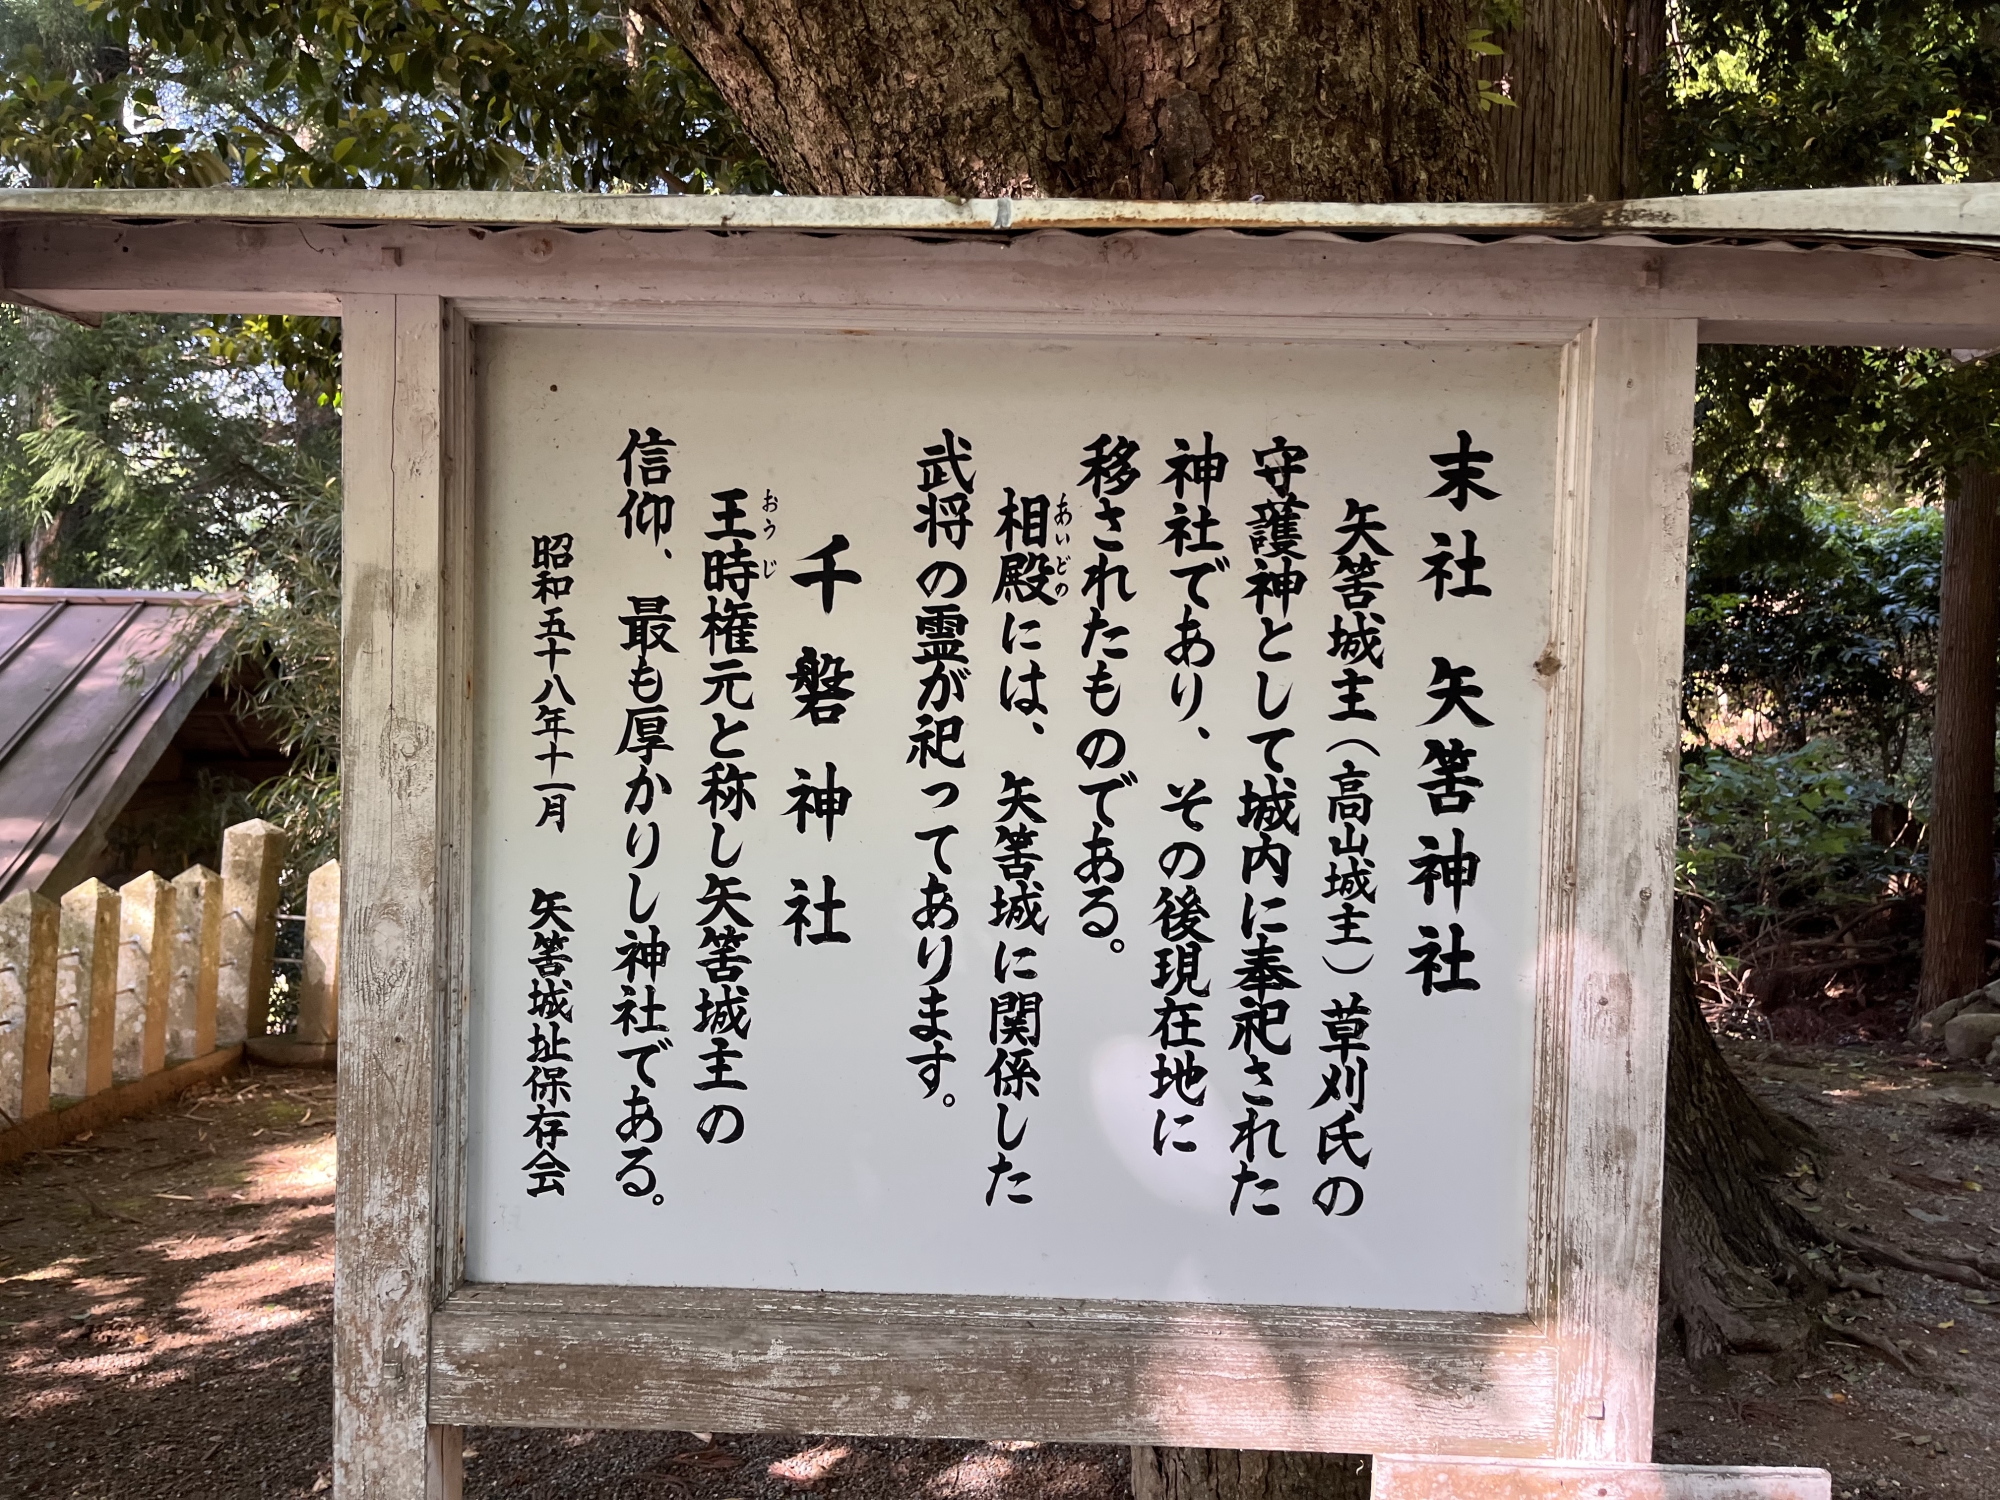 末社 矢筈神社
矢筈城主（高山城主）草刈氏の
守護神として城内に奉祀された
神社であり、その後現在地に
移されたものである。
相殿には、矢筈城に関係した
あいどの
武将の霊が祀ってあります。
千磐神社
王時権元と称し矢筈城主の
おうじ
信仰、最も厚かりし神社である。
昭和五十八年十一月 矢筈城址保存会